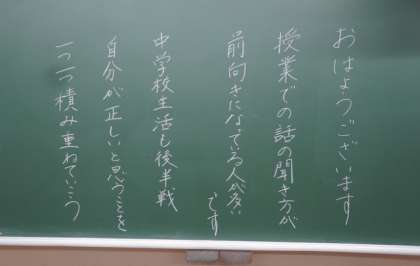 おはようございます
授業での話の聞き方が
前向きになっている人が多い
です
中学校生活も後半戦
自分が正しいと思うことを
一つ一つ積み重ねていこう